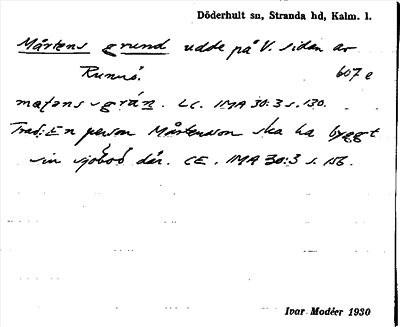 Döderhult sn, Stranda hd, Kalm. l.
Mårtens grund udde på V. sidan av
Runnö. 607 e
matəns grún. LC. IMA 30:3 s. 130.
Trad: En person Mårtensson ska ha byggt
sin sjöbod där. CE. IMA 30:3 s. 156.
Ivar Modéer 1930